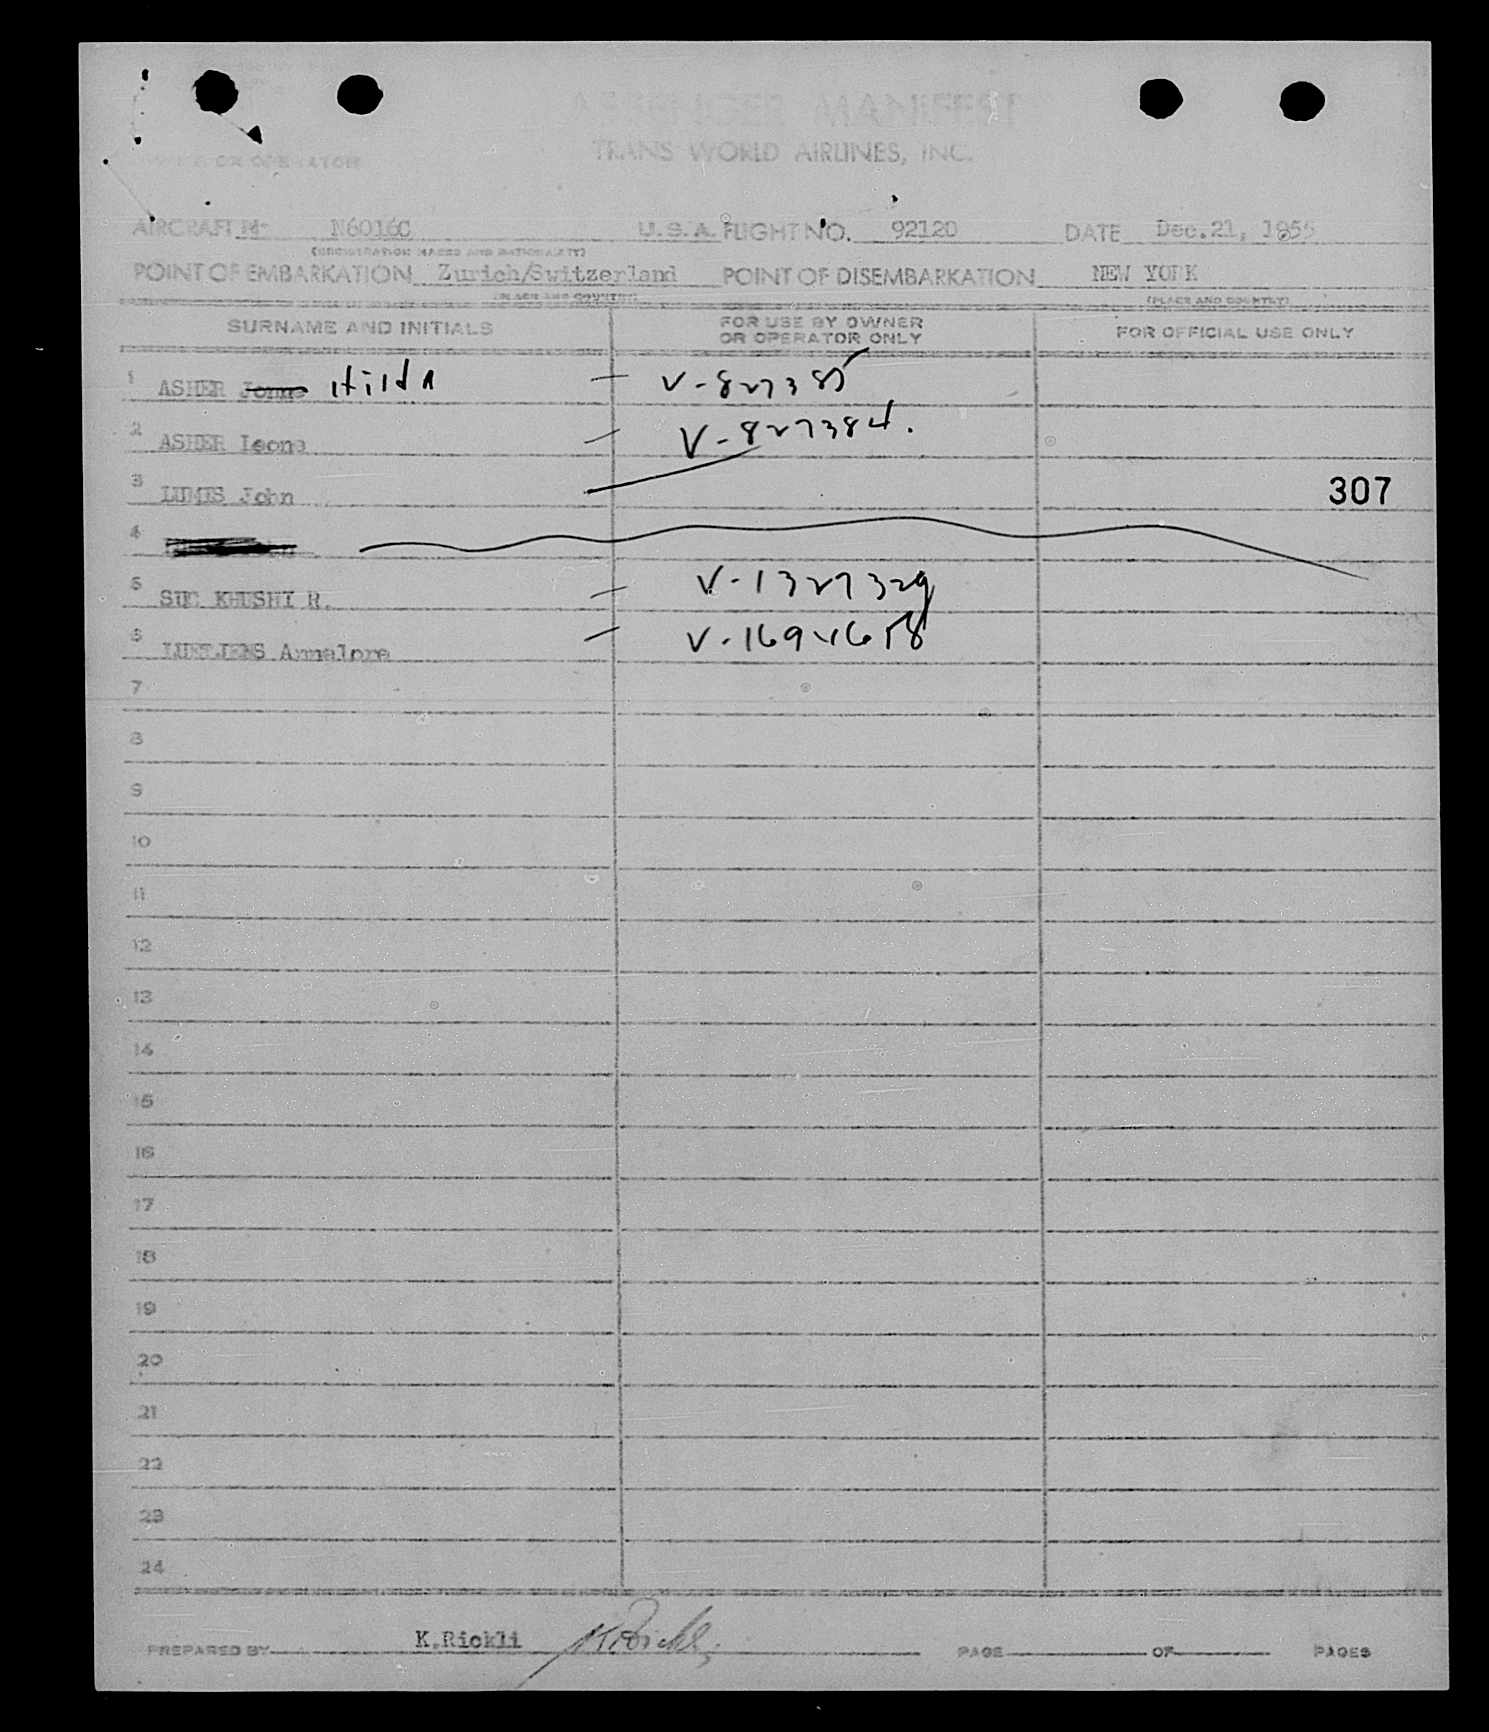 PASSENGER MANIFEST
TRANS WORLD AIRLINES, INC.
OR OPERATOR
AIRCRAFT N6016C U.S.A. FLIGHT NO. 92120 DATE Dec.21, 1955
(REGISTRATION MARKS AND NATIONALITY)
POINT OF EMBARKATION Zurich/Switzerland POINT OF DISEMBARKATION NEW YORK
(PLACE AND COUNTRY) (PLACE AND COUNTRY)
SURNAME AND INITIALS FOR USE BY OWNER OR OPERATOR ONLY FOR OFFICIAL USE ONLY
1 ASHER Hilda — V-827385
2 ASHER Leone — V-827384.
3 John 307
4
5 KHUSHI R. — V-1327329
6 LUETJENS Annelore —
7
8
9
10
11
12
13
14
15
16
17
18
19
20
21
22
23
24
PREPARED BY K.Rickli K Rickli PAGE OF PAGES